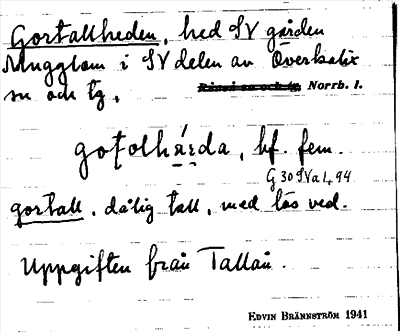 Gortallheden, hed SV gården
Mugglom i SV delen av Överkalix
sn och tg.
Norrb. l.
gotolhärda, bf. fem.
G 30 SV a 1, 94
gortall, dålig tall, med lös ved.
Uppgiften från Tallån.
EDVIN BRÄNNSTRÖM 1941